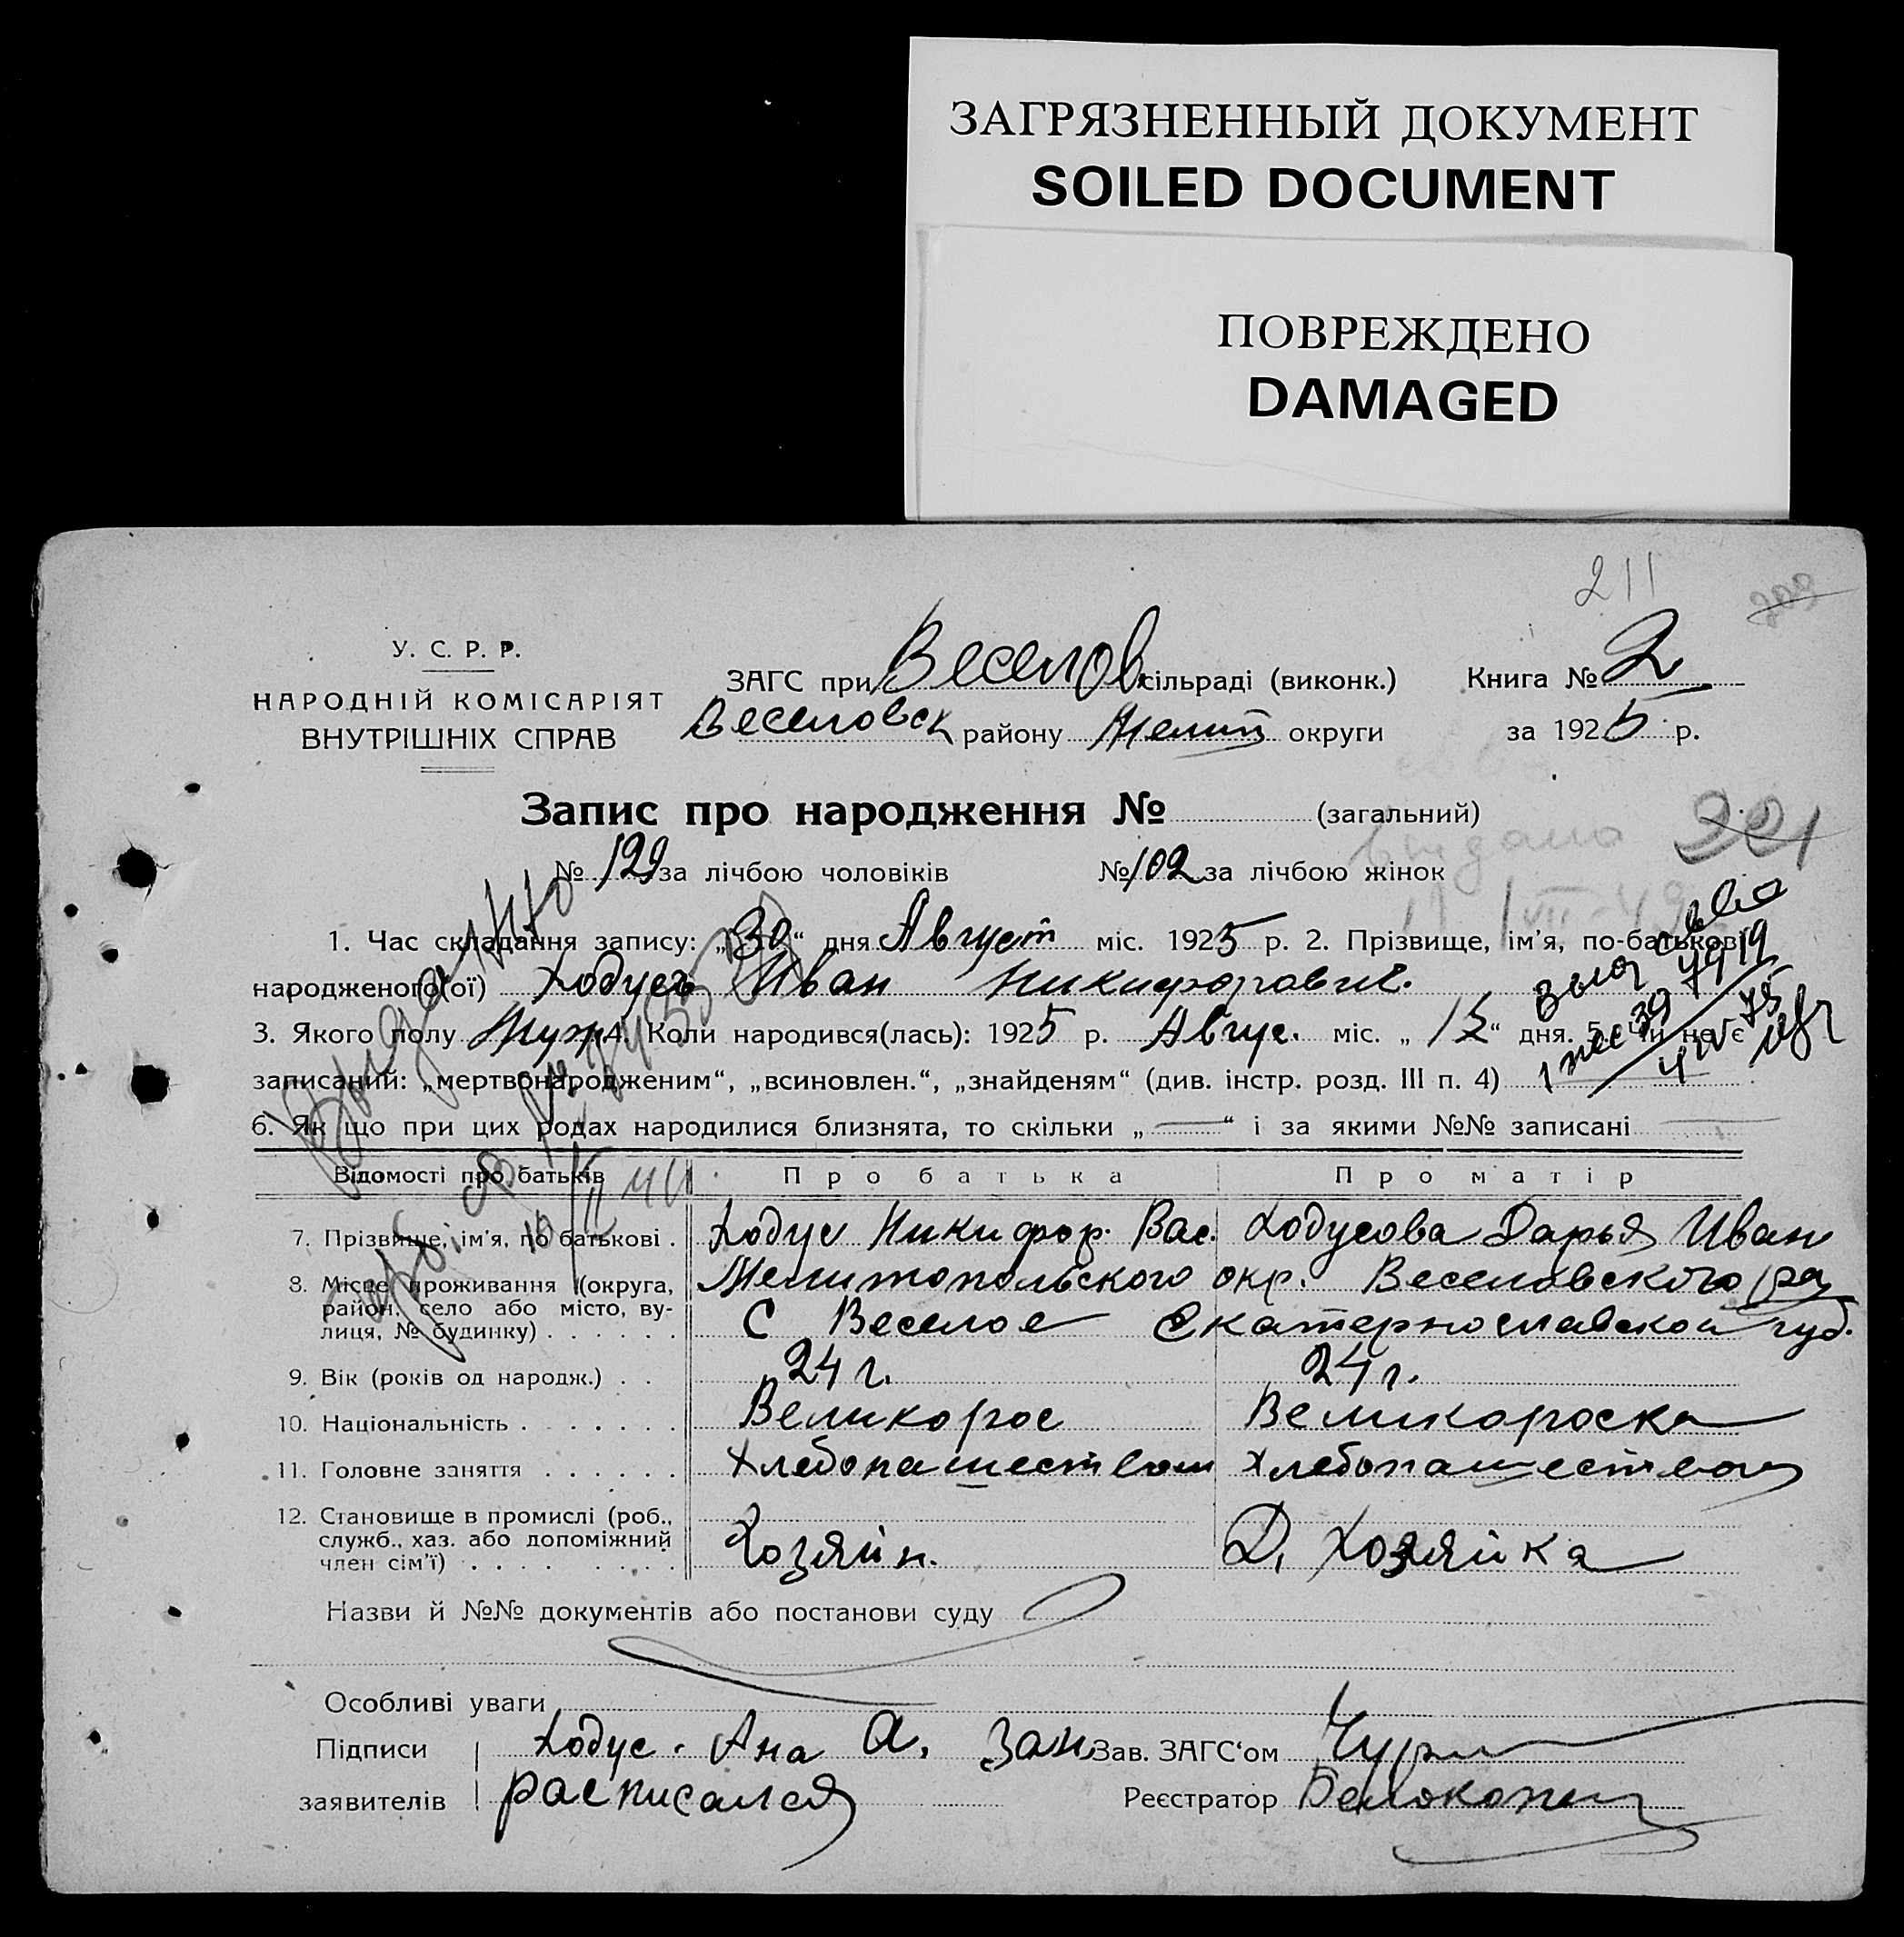 ЗАГРЯЗНЕННЫЙ ДОКУМЕНТ
SOILED DOCUMENT
ПОВРЕЖДЕНО
DAMAGED
211
У. С. Р. Р.
НАРОДНІЙ КОМІСАРІЯТ
ВНУТРІШНІХ СПРАВ
ЗАГС при Веселов сільраді (виконк.) Книга № 2
Веселовск району Мелит округи за 1925 р.
Запис про народження № (загальний)
№ 129 за лічбою чоловіків № 102 за лічбою жінок
221
1. Час складання запису: „30“ дня Август міс. 1925 р. 2. Прізвище, ім'я, по-батькові
народженого(ої) Ходусъ Иван Никифоравич.
3. Якого полу Муж 4. Коли народився(лась): 1925 р. Авгус. міс. „15“ дня. 5. Чи не є
записаний: „мертвонародженим“, „всиновлен.“, „знайденям“ (див. інстр. розд. III п. 4)
6. Як що при цих родах народилися близнята, то скільки „—“ і за якими №№ записані
Відомості про батьків Про батька Про матір
7. Прізвище, ім'я, по батькові . Ходус Никифор. Вас. Ходусова Дарья Иван
8. Місце проживання (округа, район, село або місто, вулиця, № будинку) . . . . . . Мелитопольского окр. Веселовского ра
С Веселое Екатернославской губ.
9. Вік (років од народж.) . . 24 г. 24 г.
10. Національність . . . . . . . Великорос Великороска
11. Головне заняття . . . . . . Хлебопашеством Хлебопашеством
12. Становище в промислі (роб., служб., хаз. або допоміжний член сім'ї) . . . . . . . . Хозяйн. Д. Хозяйка
Назви й №№ документів або постанови суду
Особливі уваги
Підписи Ходус. Ана А. Зан Зав. ЗАГС‘ом
заявителів расписался Реєстратор Белоконь